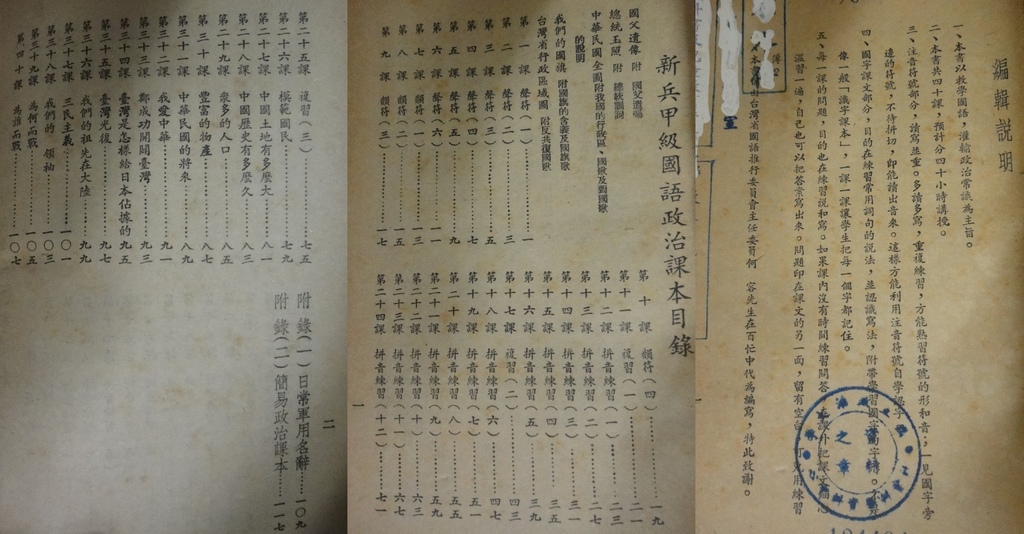 編輯說明
一、本書以教學國語,灌輸政治常識為主旨。
二、本書共四十課,預計分四十小時講授。
三、注音符號部分,讀寫並重。多讀多寫,重複練習,方能熟習符號的形和音,一見國字旁
邊的符號,不待拼切,即能讀出音來。這樣方能利用注音符號自學認字
四、國字課文部分,目的在練習常用詞句的說法,並認識寫法,附帶學習國字的字
像一般「識字課本」,一課一課讓學生把每一個字都記住。
五、每一課的問題,目的也在練習說和寫。如果課內沒有時間練習問答
溫習一遍,自己也可以把答案寫出來。問題印在課文的另一面,留有空白
台灣省國語推行委員會主任委員何 容先生在百忙中代為編寫,特此致謝。
新兵甲級國語政治課本目錄
國父遺像 附 國父遺囑
總統玉照 附 總統訓詞
中華民國全圖附我國的行政區、國歌及對國歌
的說明
我們的國旗 附國旗的含義及國旗歌
台灣省行政區域圖 附反共復國歌
第一課 聲符(一)……一
第二課 聲符(二)……三
第三課 聲符(三)……五
第四課 聲符(四)……七
第五課 聲符(五)……九
第六課 聲符(六)……一一
第七課 韻符(一)……一三
第八課 韻符(二)……一五
第九課 韻符(三)……一七
第十課 韻符(四)……一九
第十一課 複習(一)……二一
第十二課 拼音練習(一)……二七
第十三課 拼音練習(二)……三一
第十四課 拼音練習(三)……三三
第十五課 拼音練習(四)……三五
第十六課 拼音練習(五)……三九
第十七課 複習(二)……四三
第十八課 拼音練習(六)……四七
第十九課 拼音練習(七)……五一
第二十課 拼音練習(八)……五五
第二十一課 拼音練習(九)……五九
第二十二課 拼音練習(十)……六三
第二十三課 拼音練習(十一)……六七
第二十四課 拼音練習(十二)……七一
一
第二十五課 複習(三)……七五
第二十六課 模範國民……七九
第二十七課 中國土地有多麼大……八一
第二十八課 中國歷史有多麼久……八三
第二十九課 衆多的人口……八五
第三十課 豐富的物產……八七
第三十一課 中華民國的將來……八九
第三十二課 我愛中華……九一
第三十三課 鄭成功開闢臺灣……九三
第三十四課 臺灣是怎樣給日本佔據的……九五
第三十五課 臺灣光復……九七
第三十六課 我們的祖先在大陸……九九
第三十七課 三民主義……一〇一
第三十八課 我們的 領袖……一〇三
第三十九課 為何而戰……一〇五
第四十課 為誰而戰……一〇七
附錄(一)日常軍用名辭……一〇九
附錄(二)簡易政治課本……一一七
二